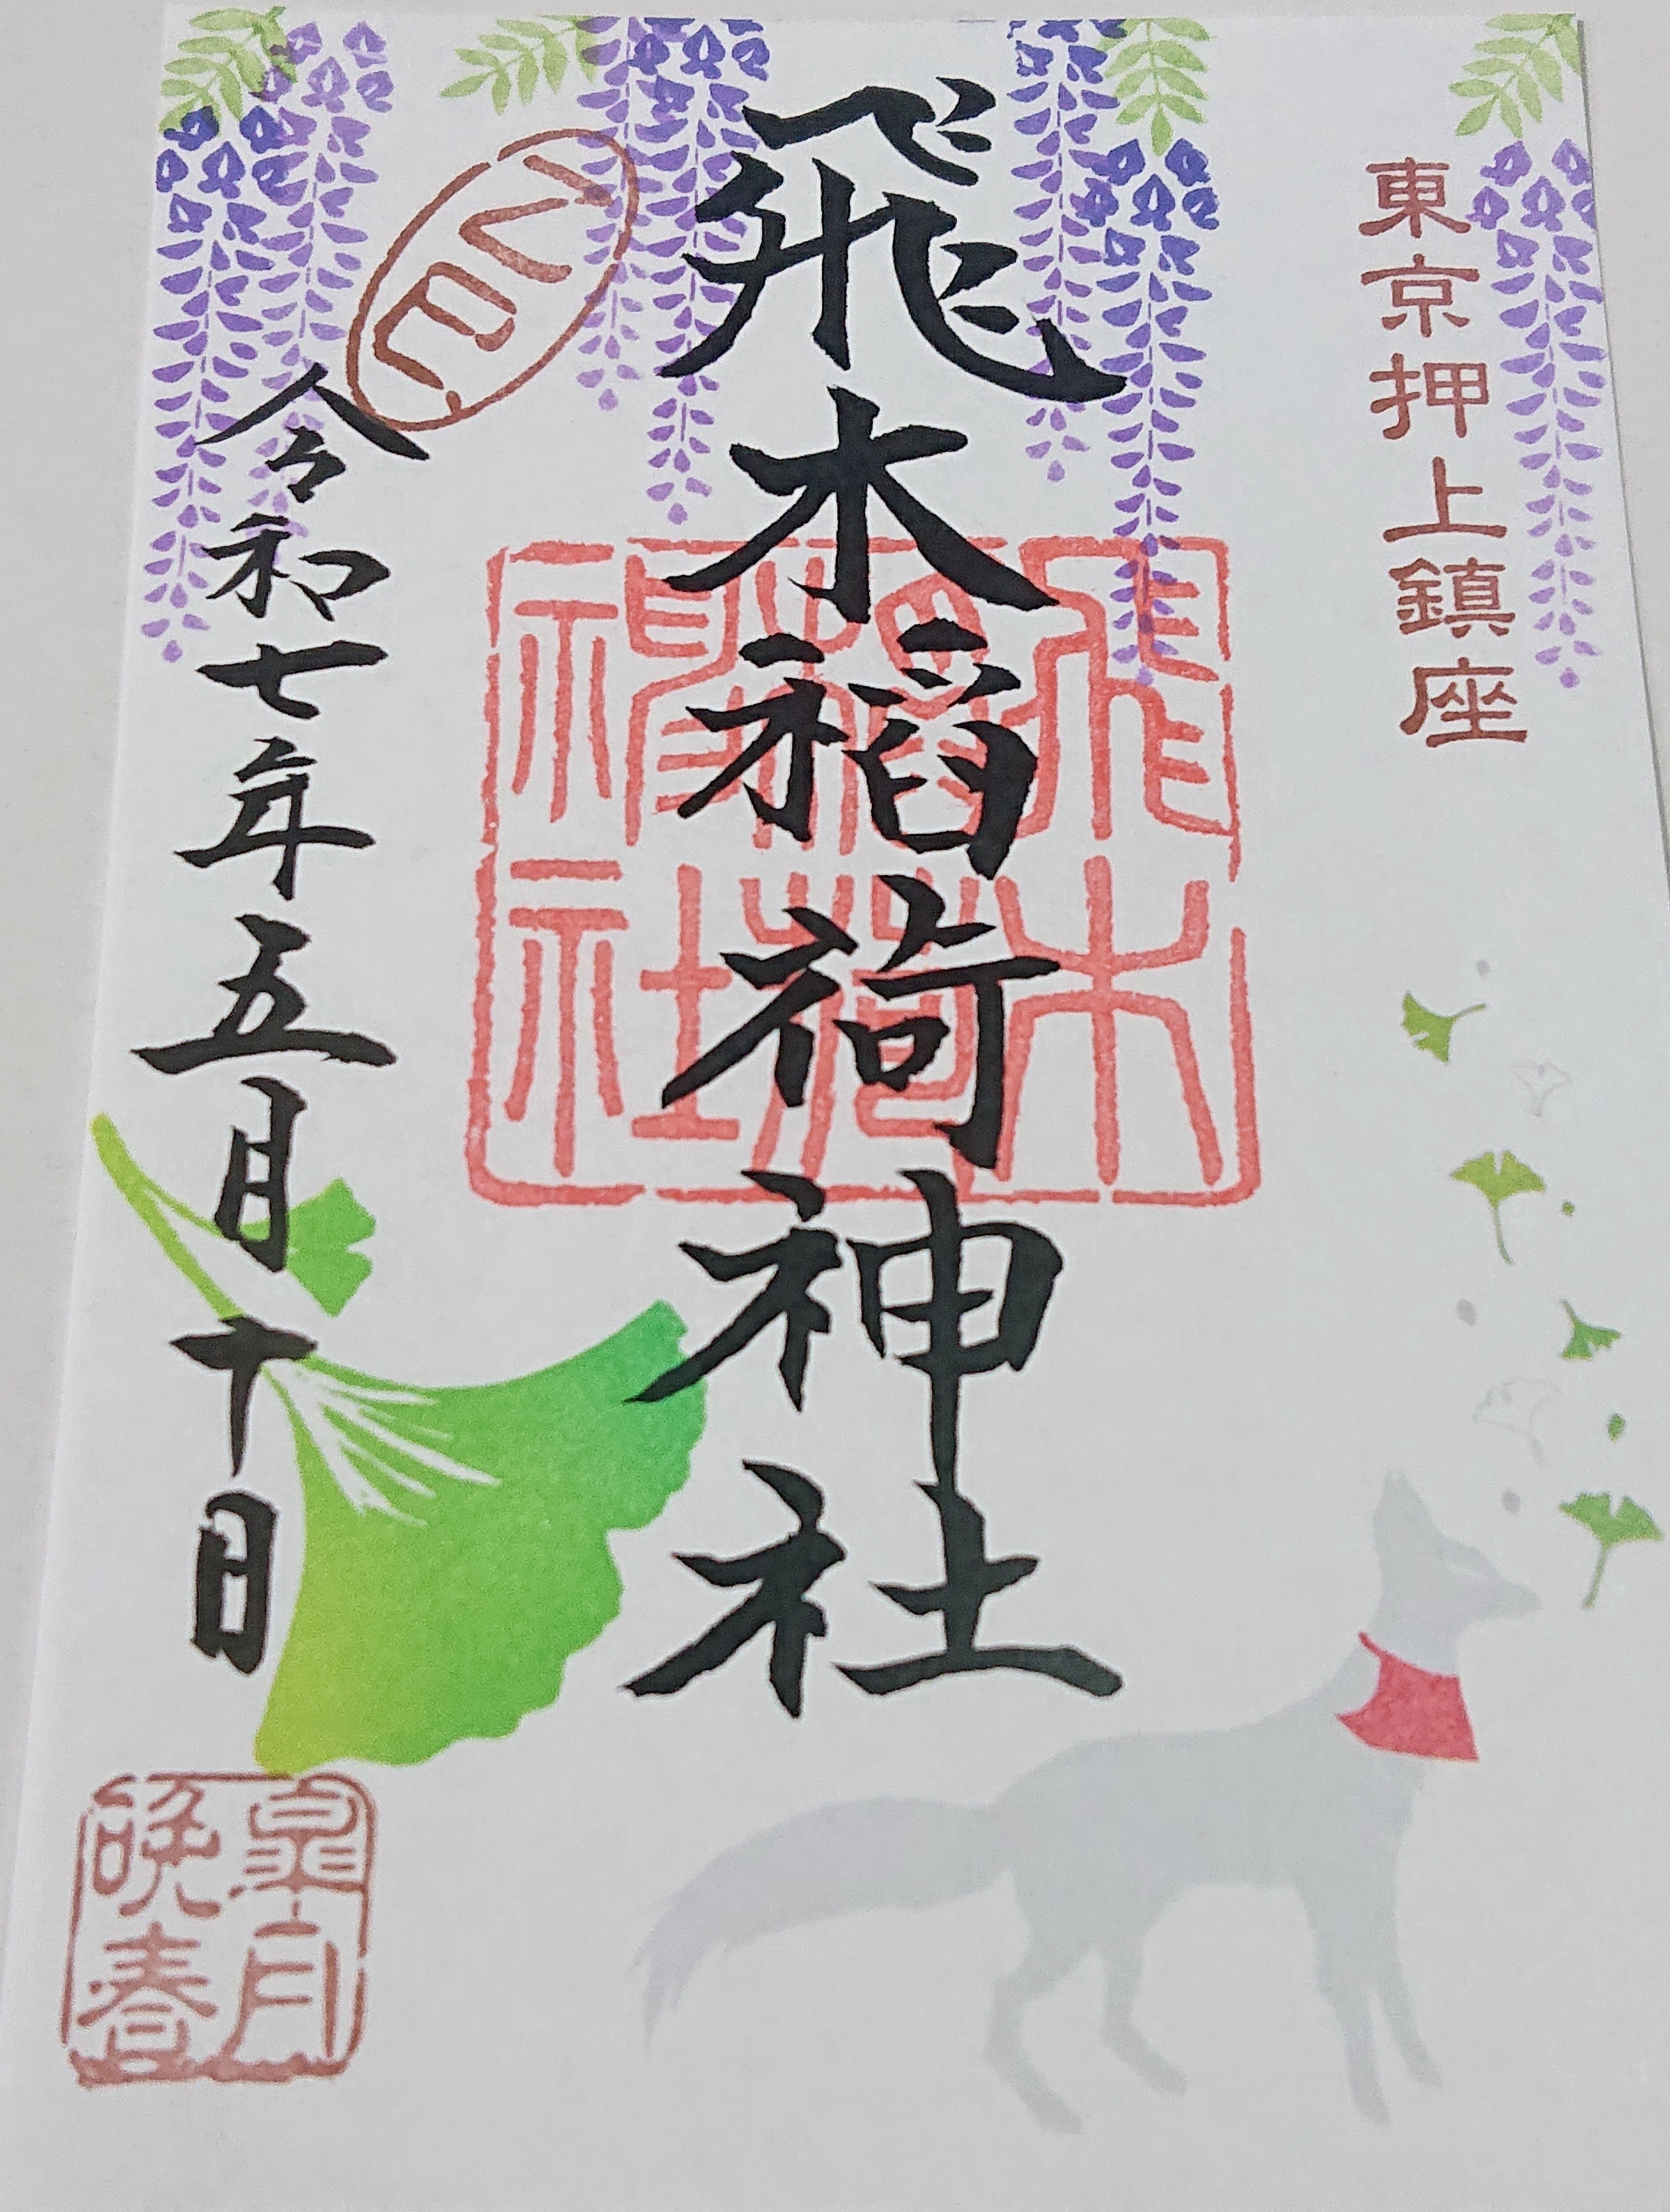 東京押上鎮座
飛木稲荷神社
飛木
稲荷
神社
令和七年五月十日
皐月
晩春